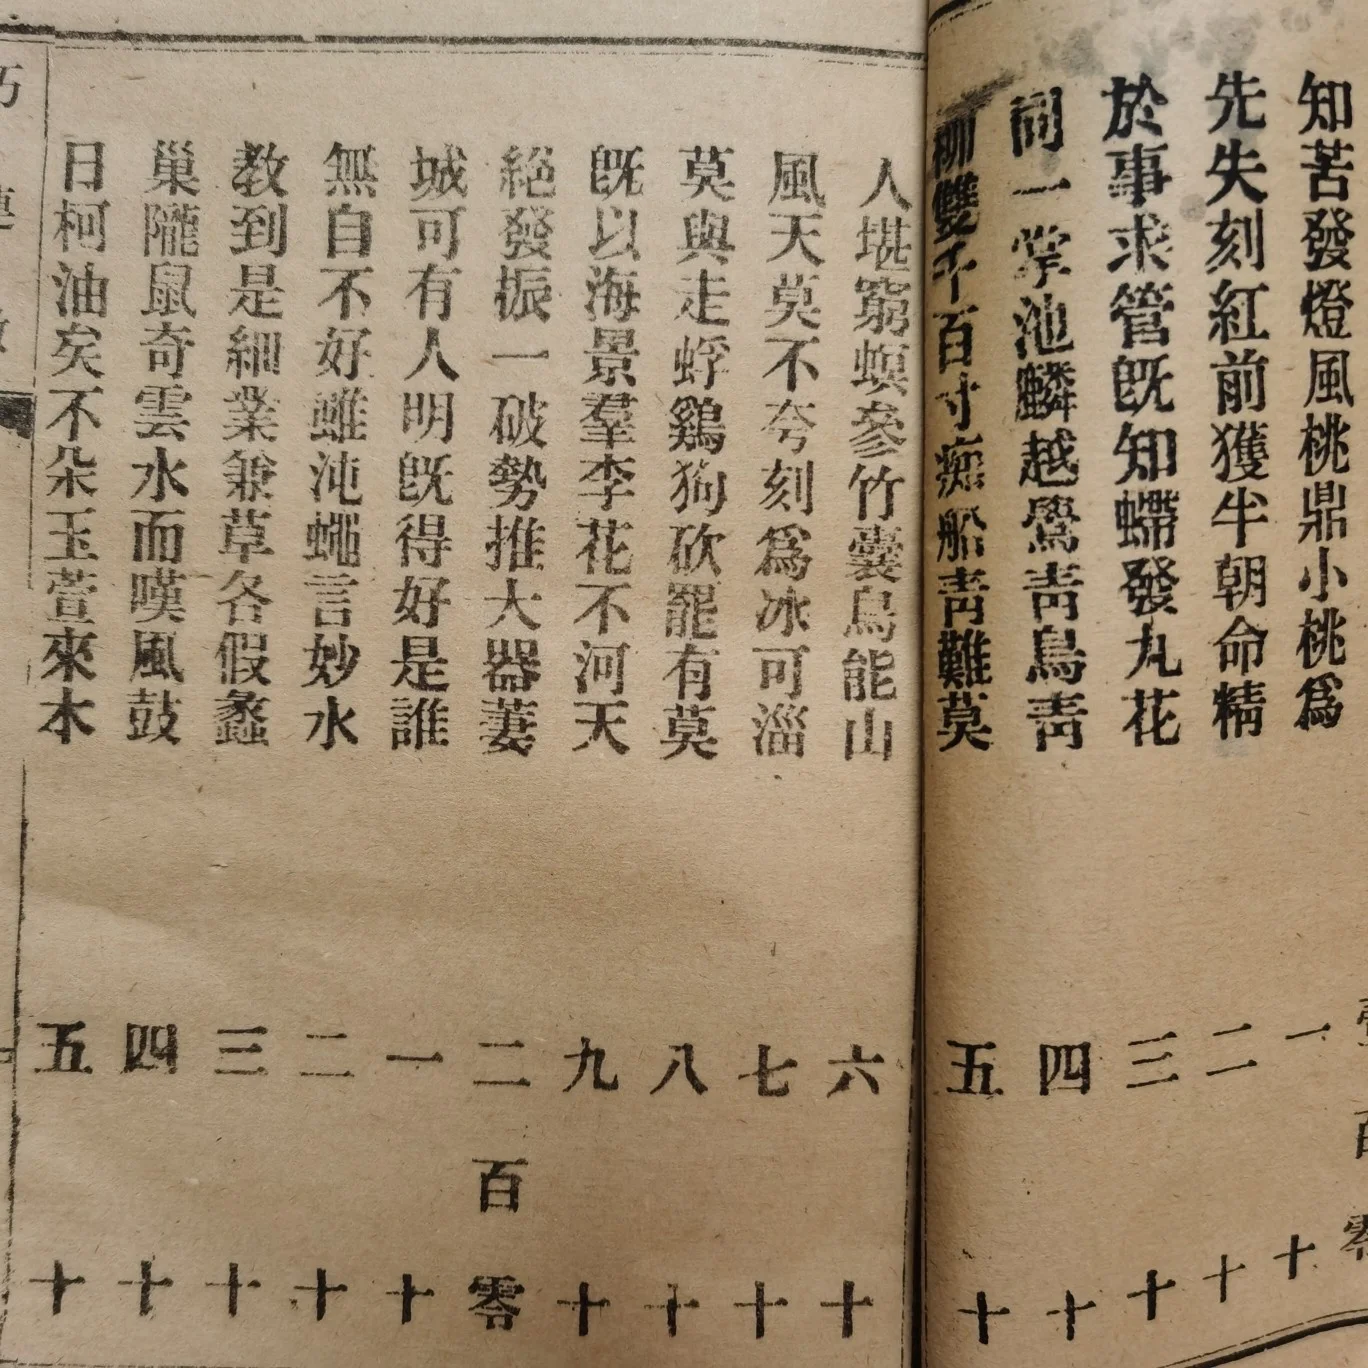 知苦發燈風桃鼎小桃爲
一十
先失刻紅前獲半朝命精
二十
於事求管既知螮發丸花
三十
同一掌池麟越鷽靑鳥靑
四十
柳雙千百寸痴船靑難莫
五十
人堪窮螟參竹囊烏能山
六十
風天莫不夸刻爲冰可淄
七十
莫與走蜉鷄狗砍罷有莫
八十
既以海景羣李花不河天
九十
絕發振一破勢推大器萋
二百零
城可有人明既得好是誰
一十
無自不好雖沌蠅言妙水
二十
教到是細業兼草各假蠡
三十
巢隴鼠奇雲水而嘆風鼓
四十
日柯油矣不朵玉萱來本
五十